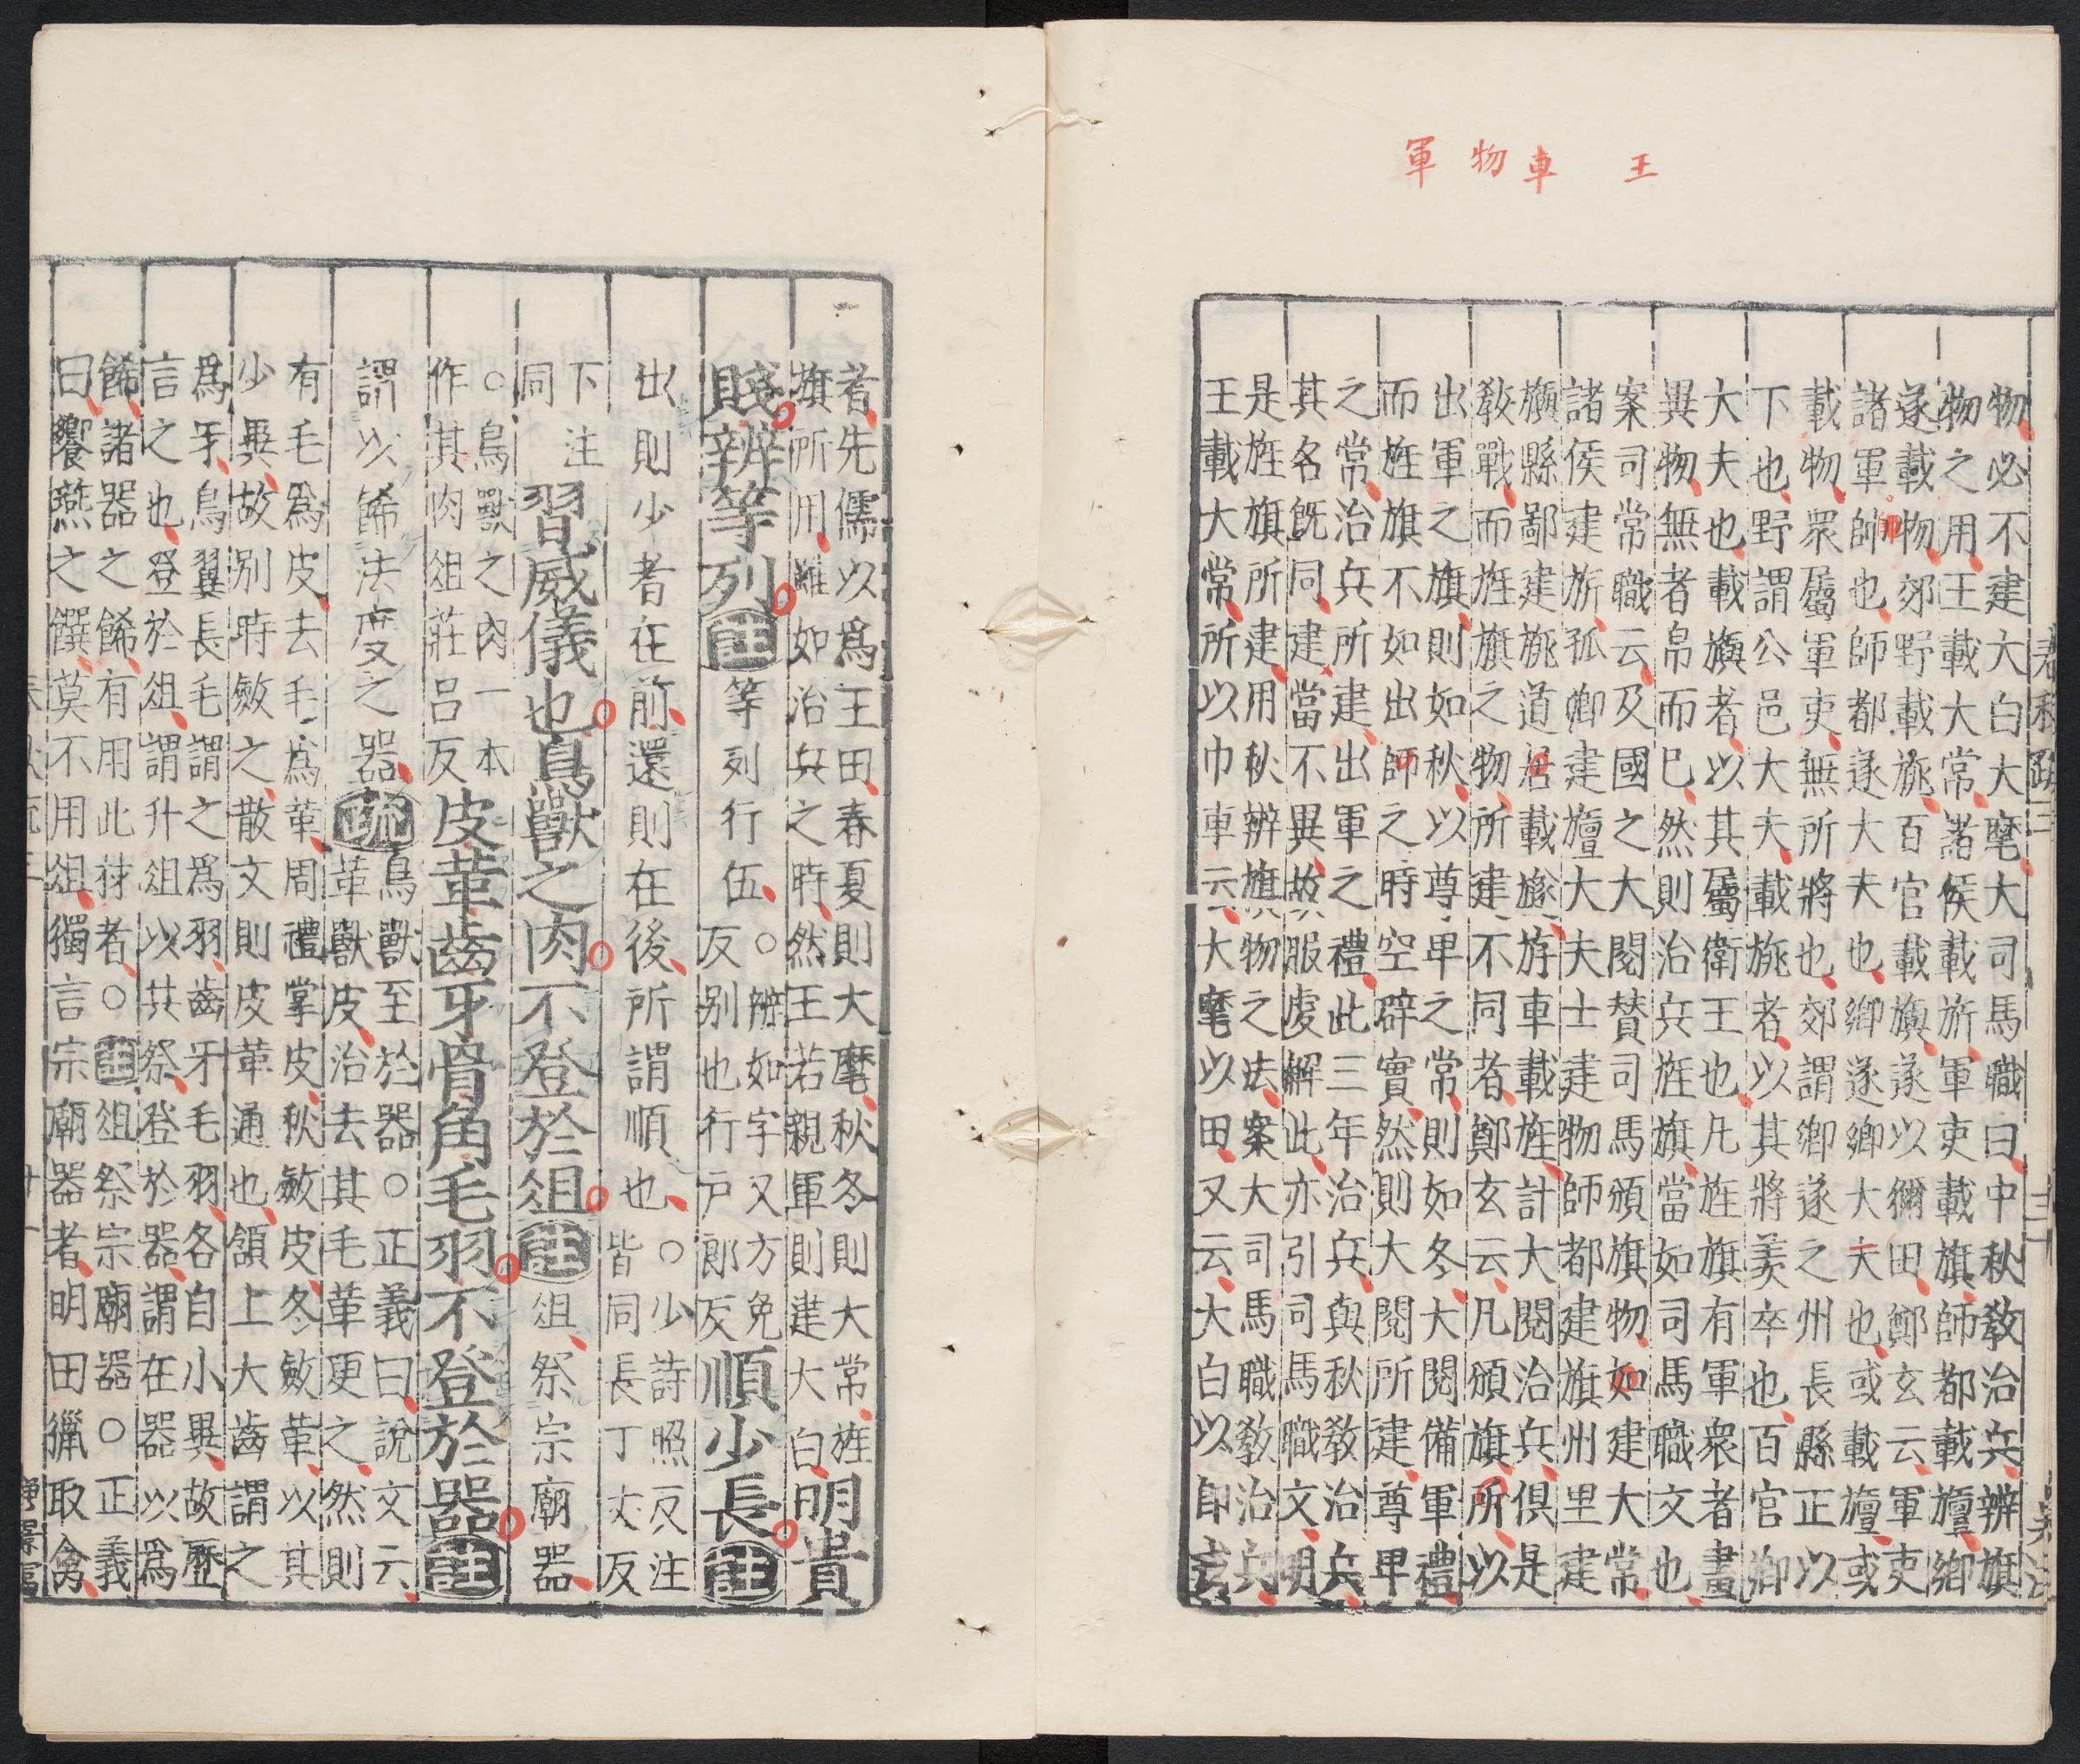 王
車
物
軍
物必不建大白大麾大司馬職曰中秋教治兵辨旗
物之用王載大常諸侯載旂軍吏載旗師都載旜鄉
遂載物郊野載旐百官載旟遂以獮田鄭玄云軍吏
諸軍帥也師都遂大夫也鄉遂鄉大夫也或載旜或
載物眾屬軍吏無所將也郊謂鄉遂之州長縣正以
下也野謂公邑大夫載旐者以其將羨卒也百官卿
大夫也載旟者以其屬衛王也凡旌旗有軍眾者畫
異物無者帛而已然則治兵旌旗當如司馬職文也
案司常職云及國之大閱贊司馬頒旗物如建大常
諸侯建旂孤卿建旜大夫士建物師都建旗州里建
旟縣鄙建旐道居載旞斿車載旌計大閱治兵俱是
教戰而旌旗之物所建不同者鄭玄云凡頒旗所以
出軍之旗則如秋以尊卑之常則如冬大閱備軍禮
而旌旗不如出師之時空辟實然則大閱所建尊卑
之常治兵所建出軍之禮此三年治兵與秋教治兵
其名既同建當不異故服虔解此亦引司馬職文明
是旌旗所建用秋辨旗物之法案大司馬職教治兵
王載大常所以巾車云大麾以田又云大白以即戎
者先儒以爲王田春夏則大麾秋冬則大常旌
旗所用雖如治兵之時然王若親軍則建大白
明貴
賤辨等列
註
等列行伍○辨如字又方免
反别也行戶郎反
順少長
註
出則少者在前還則在後所謂順也○少詩照反注
皆同長丁丈反
下注
同
習威儀也鳥獸之肉不登於俎
註
俎祭宗廟器
○鳥獸之肉一本
作其肉俎莊呂反
皮革齒牙骨角毛羽不登於器
註
謂以飾法度之器
疏
鳥獸至於器○正義曰說文云
革獸皮治去其毛革更之然則
有毛爲皮去毛爲革周禮掌皮秋斂皮冬斂革以其
少異故别時斂之散文則皮革通也頷上大齒謂之
爲牙鳥翼長毛謂之爲羽齒牙毛羽各自小異故歷
言之也登於俎謂升俎以共祭登於器謂在器以爲
飾諸器之飾有用此材者○
註
俎祭宗廟器○正義
曰饗燕之饌莫不用俎獨言宗廟器者明田獵取禽